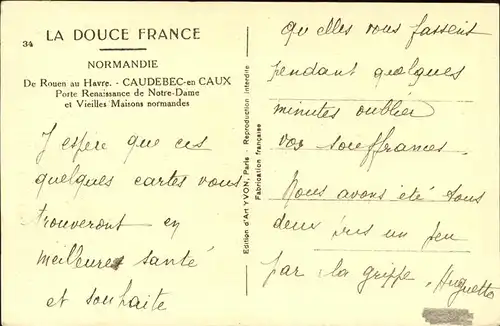 34
LA DOUCE FRANCE
NORMANDIE
De Rouen au Havre. - CAUDEBEC-en CAUX
Porte Renaissance de Notre-Dame
et Vieilles Maisons normandes
J'espère que ces
quelques cartes vous
trouveront en
meilleure santé
et souhaite
Edition d'Art YVON, Paris Reproduction interdite
Fabrication française
qu'elles vous fassent
pendant quelques
minutes oublier
vos souffrances.
Nous avons été tous
deux pris un peu
par la grippe. Huguette